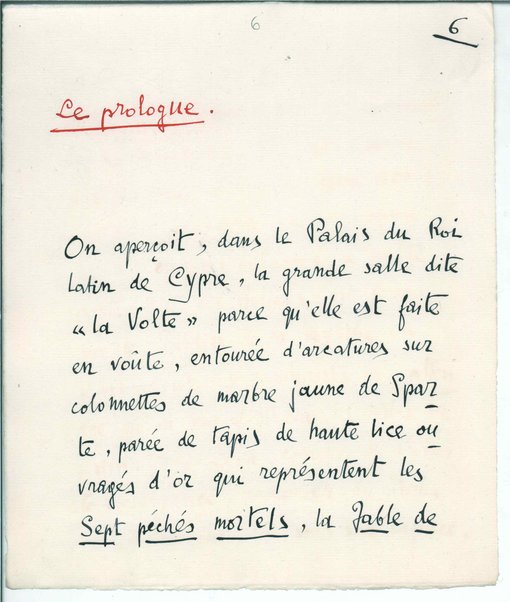 6
6
Le prologue.
On aperçoit, dans le Palais du Roi
latin de Cypre, la grande salle dite
« la Volte » parce qu'elle est faite
en voûte, entourée d'arcatures sur
colonnettes de marbre jaune de Spar
te, parée de tapis de haute lice ou
vragés d'or qui représentent les
Sept péchés mortels, la Fable de